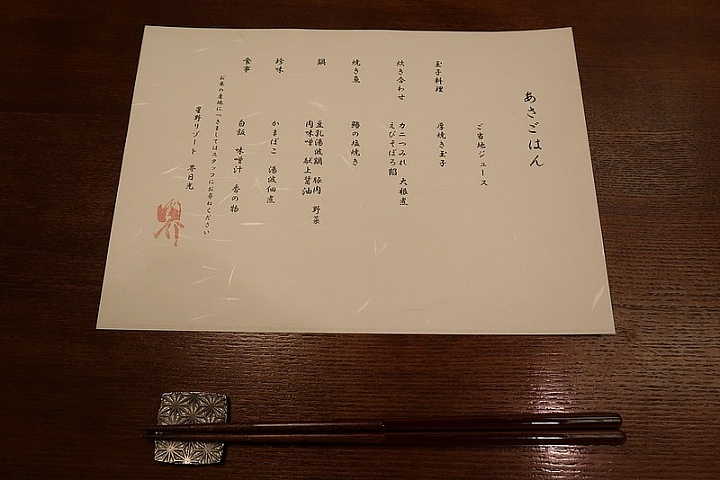 あさごはん
ご当地ジュース
玉子料理 厚焼き玉子
炊き合わせ カニつみれ 大根煮
えびそぼろ餡
焼き魚 鯵の塩焼き
鍋 豆乳湯波鍋 豚肉 野菜
肉味噌 献上醤油
珍味 かまぼこ 湯波佃煮
食事 白飯 味噌汁 香の物
お米の産地につきましてはスタッフにお尋ねください
星野リゾート 界日光
界